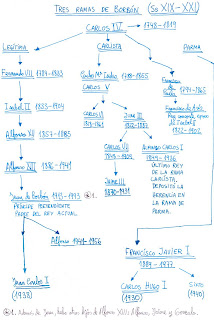 TRES RAMAS DE BORBÓN (SS XIX-XXI)
CARLOS IV → 1748-1819
LEGÍTIMA
CARLISTA
PARMA
Fernando VII 1784-1833
Carlos Mª Isidro 1788-1855
CARLOS V
Isabel II 1833-1904
CARLOS VI
1818-1861
JUAN III
1822-1887
Alfonso XII 1857-1885
CARLOS VII
1848-1909
ALFONSO CARLOS I
1849-1936
ÚLTIMO REY
DE LA RAMA
CARLISTA,
DEPOSITÓ LA
HERENCIA EN
LA RAMA DE
PARMA.
Alfonso XIII 1886-1941
JAIME III
1870-1931
Juan de Borbón 1913-1993
PRÍNCIPE PRETENDIENTE
PADRE DEL REY ACTUAL
①1.
Alfonso 1941-1956
Juan Carlos I
(1938)
FRANCISCO JAVIER I
1889-1977
CARLOS HUGO I
(1930)
SIXTO
(1940)
①1. Además de Juan, hubo otros hijos de Alfonso XIII: Alfonso, Jaime y Gonzalo.